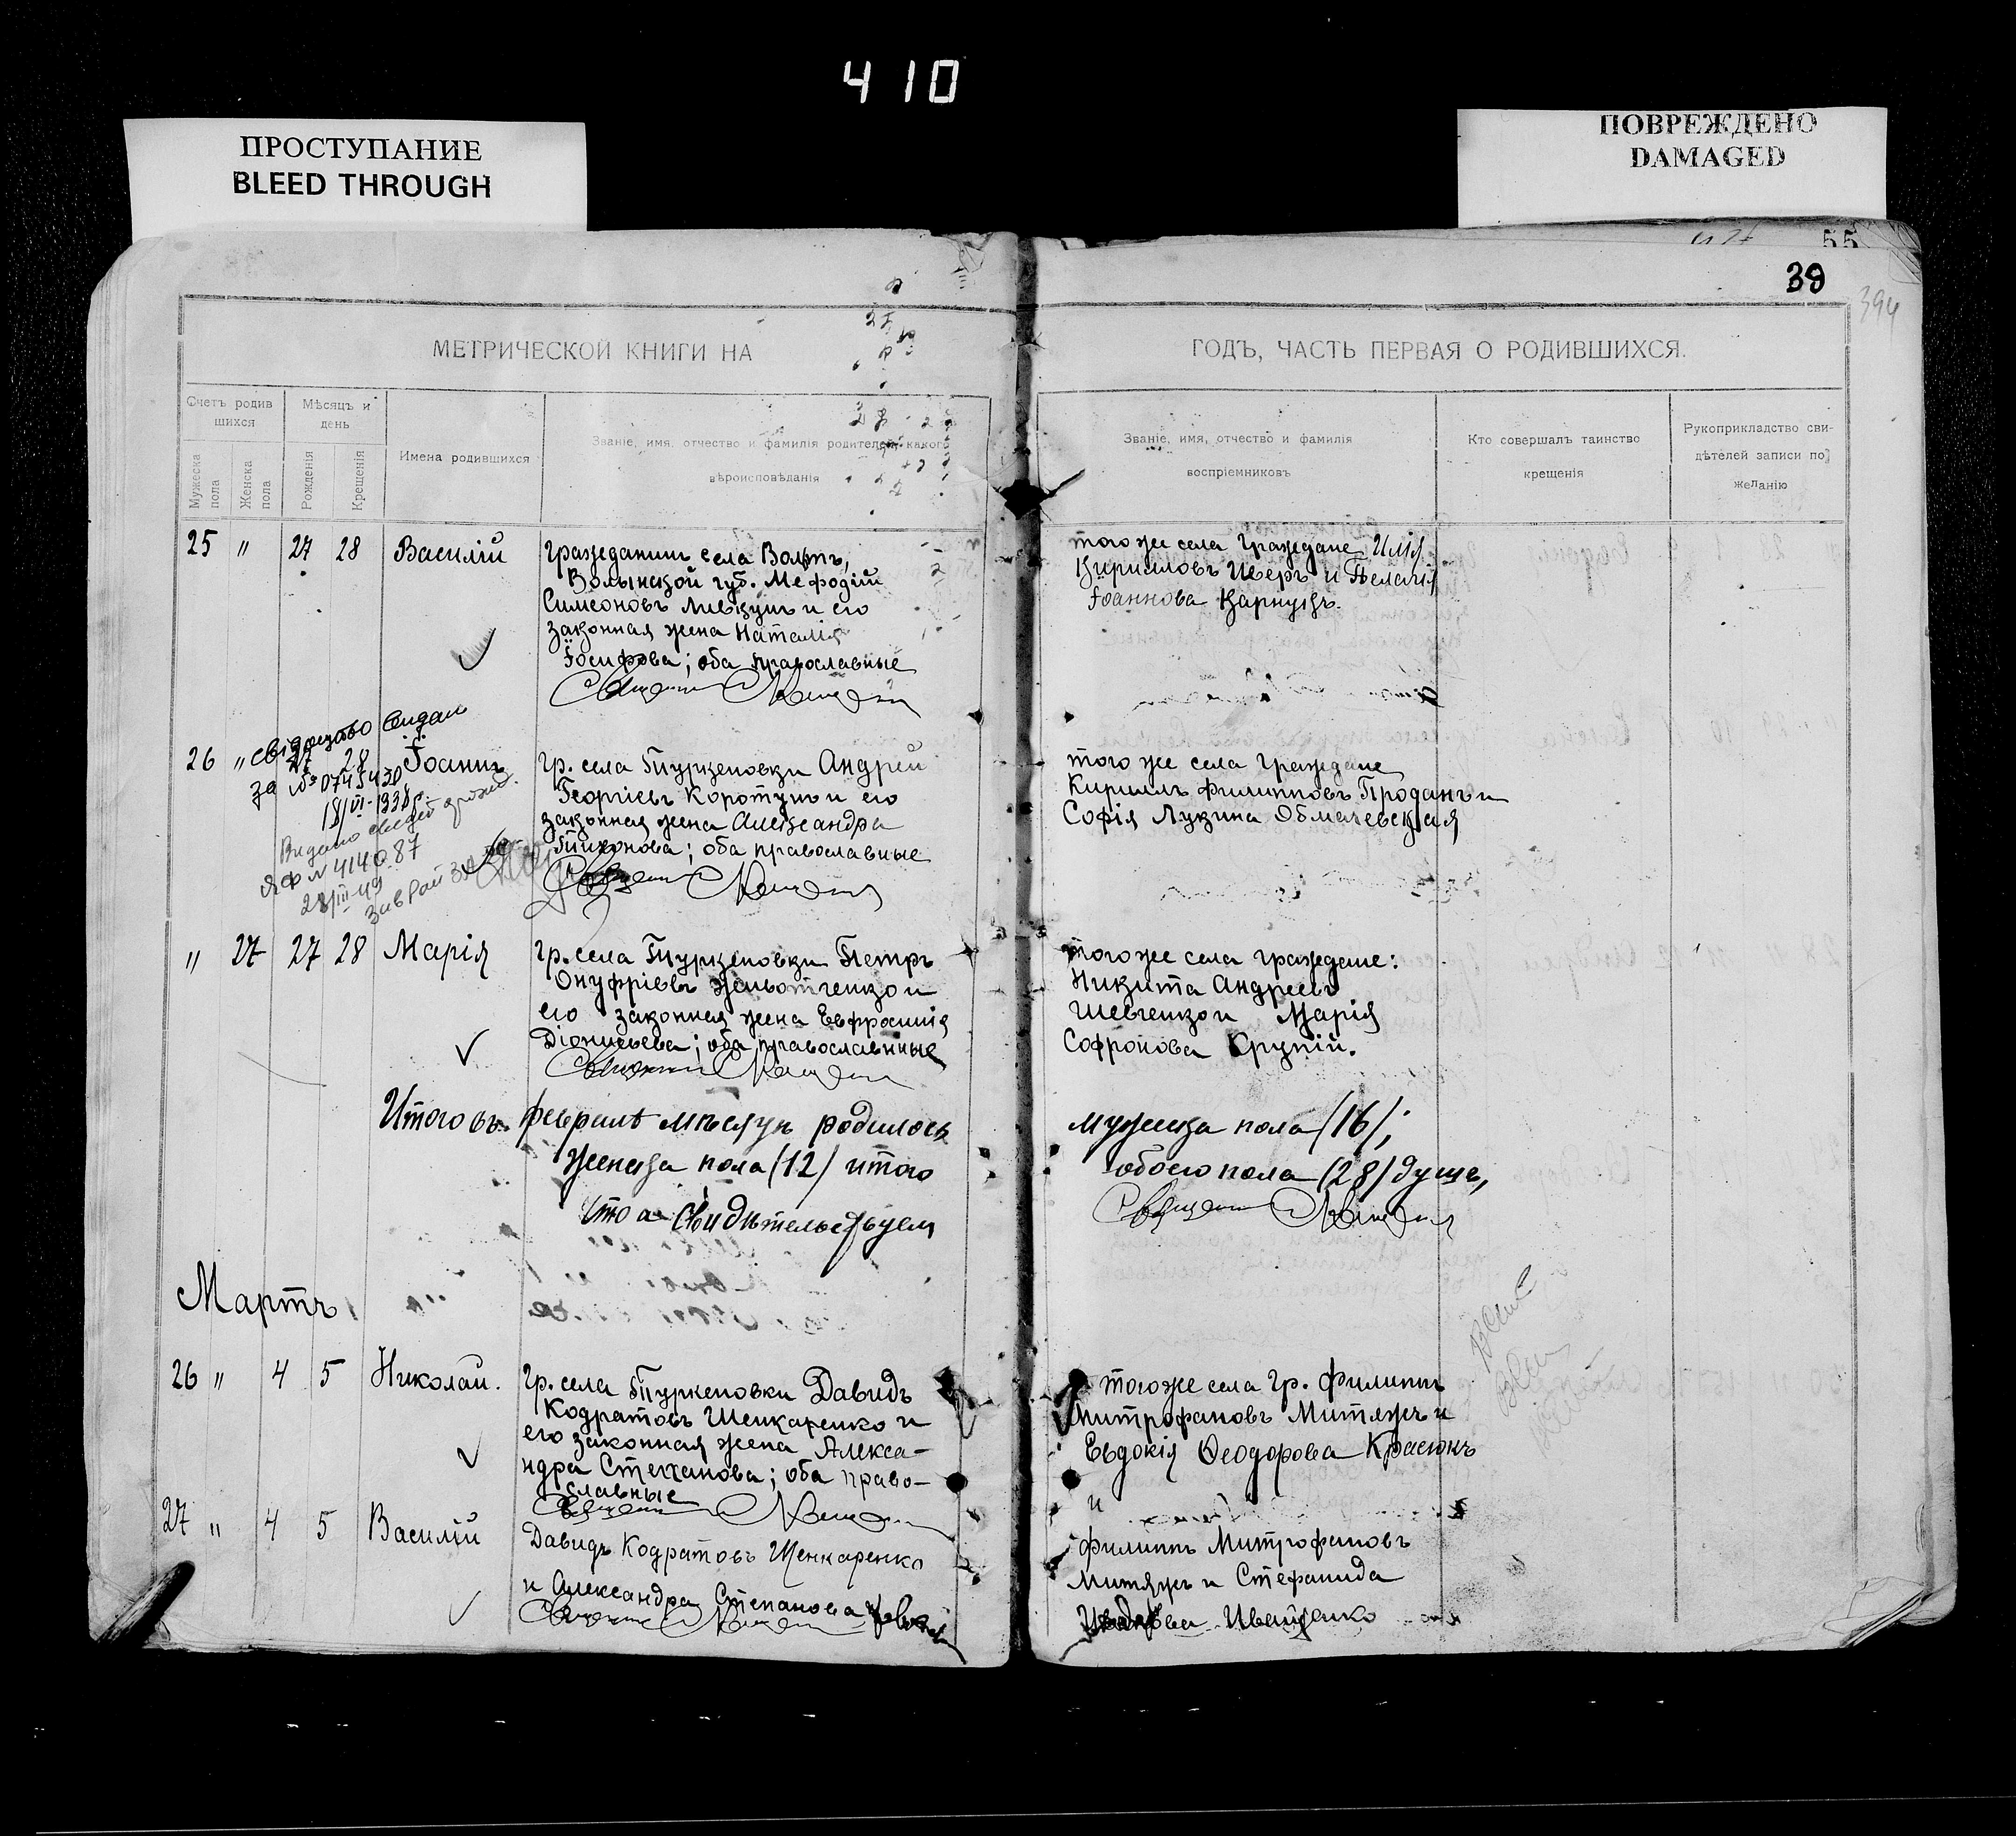 410
ПРОСТУПАНИЕ
BLEED THROUGH
ПОВРЕЖДЕНО
DAMAGED
55
39
394
МЕТРИЧЕСКОЙ КНИГИ НА
ГОДЪ, ЧАСТЬ ПЕРВАЯ О РОДИВШИХСЯ.
Счетъ родив
шихся
Мужеска пола
Женска пола
Мѣсяцъ и
день
Рожденія
Крещенія
Имена родившихся
Званіе, имя, отчество и фамилія родителей, какого
вѣроисповѣданія
Званіе, имя, отчество и фамилія
воспріемниковъ
Кто совершалъ таинство
крещенія
Рукоприкладство сви-
дѣтелей записи по
желанію
25 " 27 28 Василій
гражданинъ села
Волынской губ. Мефодій
Симеоновъ и его
законная жена Наталія
Іосифова; оба православные
того же села граждане Илія
Кирилловъ и Пелагія
Іоаннова
свідоцтво видан
за № 074
18/III-1938р.
26 " 27 28 Іоаннъ
Видано
ЯФ № 414087
28/III-49
гр. села Туркеновки Андрей
Георгіевъ Коротунъ и его
законная жена Александра
Тихонова; оба православные
того же села граждане
Кириллъ Филипповъ Проданъ и
Софія Лукина Обмачевская
" 27 27 28 Марія
гр. села Туркеновки Петръ
Онуфріевъ и
его законная жена Евфросинія
Діонисьева; оба православные
того же села граждане:
Никита Андреевъ
Шевченко и Марія
Софронова Крупій.
Итого въ февралѣ мѣсяцѣ родилось
женска пола (12) итого
Что и свидѣтельствуемъ
мужеска пола (16);
обоего пола (28) душъ,
Мартъ
26 " 4 5 Николай.
гр. села Туркеновки Давидъ
Кодратовъ Шенкаренко и
его законная жена Алекса-
ндра Степанова; оба право-
славные
того же села гр. Филиппъ
Митрофановъ Митяжъ и
Евдокія Феодорова Красюкъ
и
27 " 4 5 Василій
Давидъ Кодратовъ Шенкаренко
и Александра Степанова
Филиппъ Митрофановъ
Митяжъ и Стефанида
Иващенко